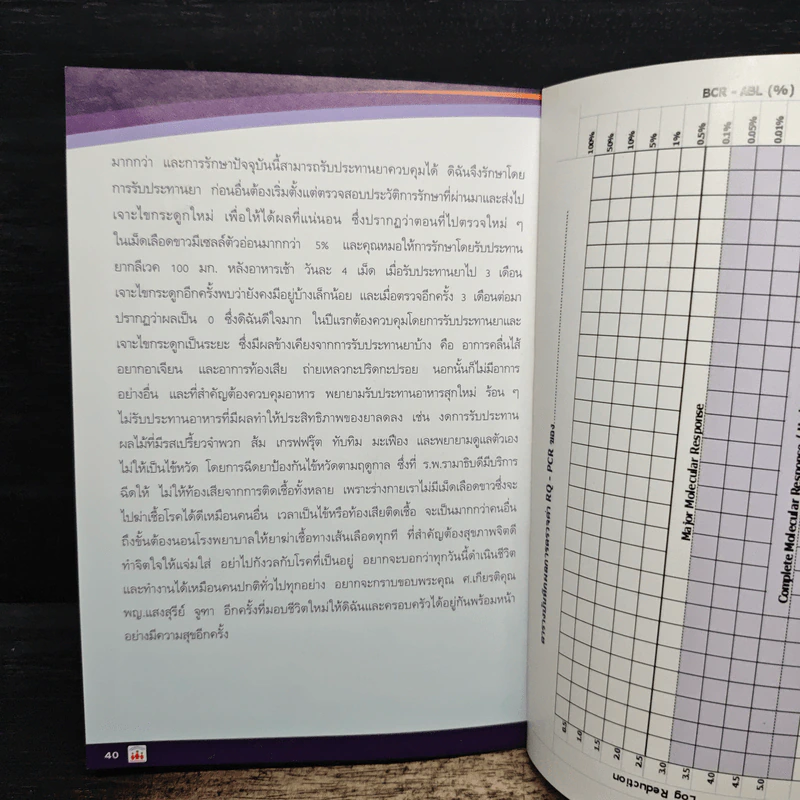 มากกว่า และการรักษาปัจจุบันนี้สามารถรับประทานยาควบคุมได้ ดิฉันจึงรักษาโดย
การรับประทานยา ก่อนอื่นต้องเริ่มตั้งแต่ตรวจสอบประวัติการรักษาที่ผ่านมาและส่งไป
เจาะไขกระดูกใหม่ เพื่อให้ได้ผลที่แน่นอน ซึ่งปรากฏว่าตอนที่ไปตรวจใหม่ ๆ
ในเม็ดเลือดขาวมีเซลล์ตัวอ่อนมากกว่า 5% และคุณหมอให้การรักษาโดยรับประทาน
ยากลีเวค 100 มก. หลังอาหารเช้า วันละ 4 เม็ด เมื่อรับประทานยาไป 3 เดือน
เจาะไขกระดูกอีกครั้งพบว่ายังคงมีอยู่บ้างเล็กน้อย และเมื่อตรวจอีกครั้ง 3 เดือนต่อมา
ปรากฏว่าผลเป็น 0 ซึ่งดิฉันดีใจมาก ในปีแรกต้องควบคุมโดยการรับประทานยาและ
เจาะไขกระดูกเป็นระยะ ซึ่งมีผลข้างเคียงจากการรับประทานยาบ้าง คือ อาการคลื่นไส้
อยากอาเจียน และอาการท้องเสีย ถ่ายเหลวกะปริดกะปรอย นอกนั้นก็ไม่มีอาการ
อย่างอื่น และที่สำคัญต้องควบคุมอาหาร พยายามรับประทานอาหารสุกใหม่ ร้อน ๆ
ไม่รับประทานอาหารที่มีผลทำให้ประสิทธิภาพของยาลดลง เช่น งดการรับประทาน
ผลไม้ที่มีรสเปรี้ยวจำพวก ส้ม เกรฟฟรุ๊ต ทับทิม มะเฟือง และพยายามดูแลตัวเอง
ไม่ให้เป็นไข้หวัด โดยการฉีดยาป้องกันไข้หวัดตามฤดูกาล ซึ่งที่ ร.พ.รามาธิบดีมีบริการ
ฉีดให้ ไม่ให้ท้องเสียจากการติดเชื้อทั้งหลาย เพราะร่างกายเราไม่มีเม็ดเลือดขาวซึ่งจะ
ไปฆ่าเชื้อโรคได้ดีเหมือนคนอื่น เวลาเป็นไข้หรือท้องเสียติดเชื้อ จะเป็นมากกว่าคนอื่น
ถึงขั้นต้องนอนโรงพยาบาลให้ยาฆ่าเชื้อทางเส้นเลือดทุกที ที่สำคัญต้องสุขภาพจิตดี
ทำจิตใจให้แจ่มใส อย่าไปกังวลกับโรคที่เป็นอยู่ อยากจะบอกว่าทุกวันนี้ดำเนินชีวิต
และทำงานได้เหมือนคนปกติทั่วไปทุกอย่าง อยากจะกราบขอบพระคุณ ศ.เกียรติคุณ
พญ.แสงสุรีย์ จูฑา อีกครั้งที่มอบชีวิตใหม่ให้ดิฉันและครอบครัวได้อยู่กันพร้อมหน้า
อย่างมีความสุขอีกครั้ง
40
BCR - ABL (%)
100%
50%
10%
5%
1%
0.5%
0.1%
0.05%
0.01%
Major Molecular Response
Complete Molecular Response
ตารางบันทึกผลการตรวจค่า RQ - PCR ของ
0.5
1.0
1.5
2.0
2.5
3.0
3.5
4.0
4.5
5.0
Log Reduction